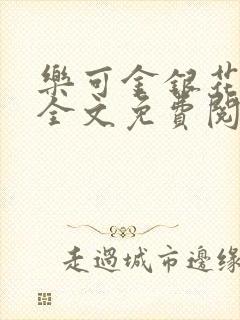 樂可金銀花
全文免費閱
走過城市邊緣